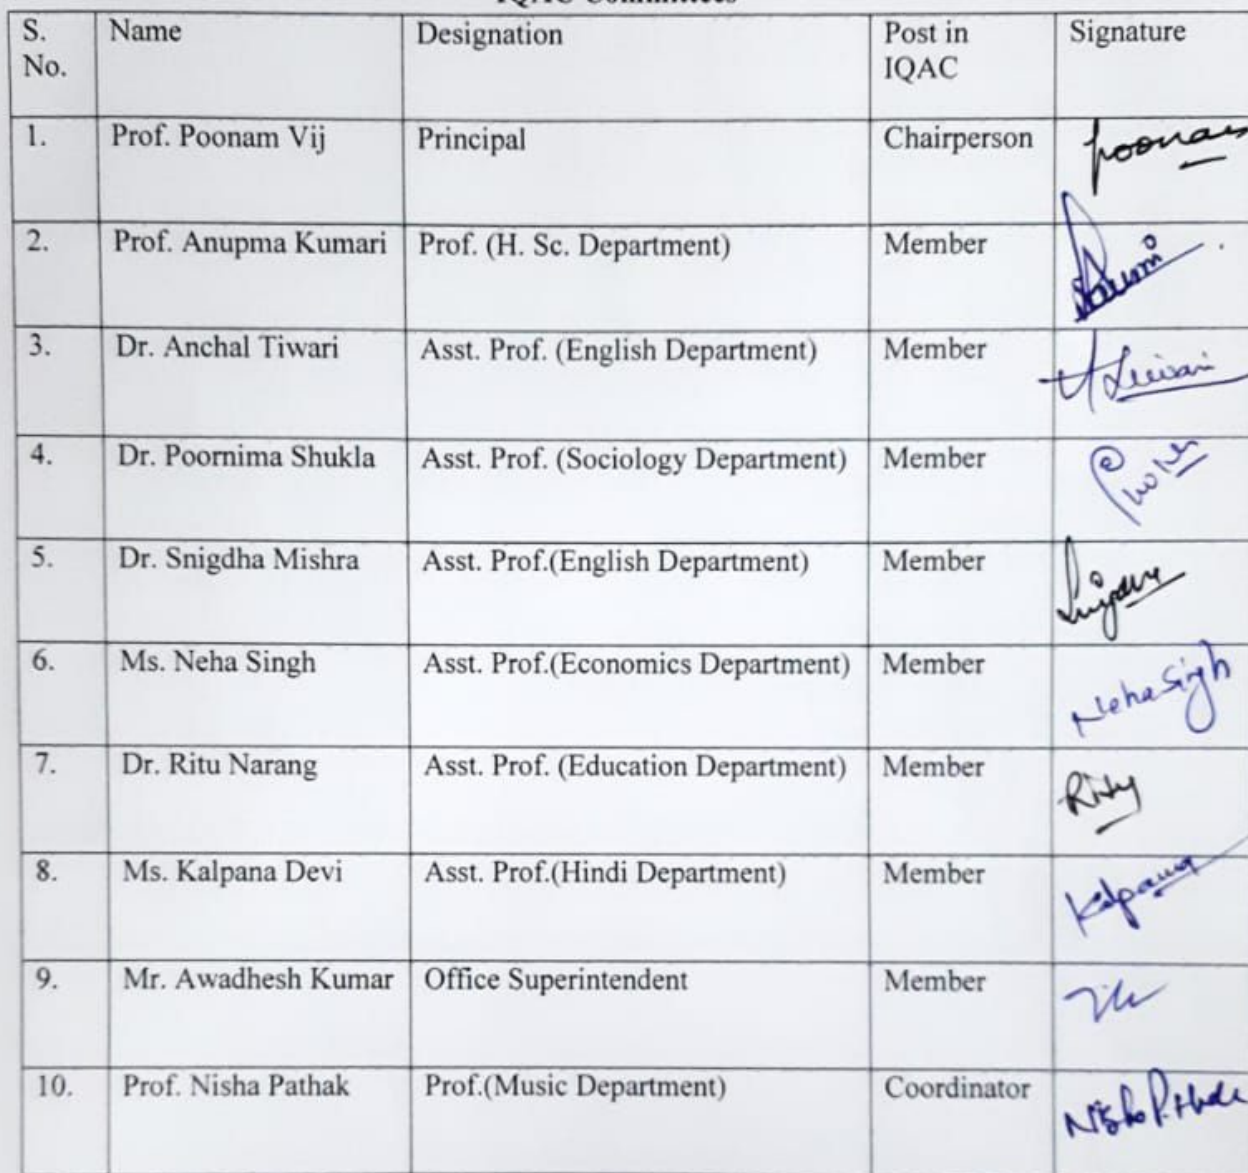 S. No. Name Designation Post in IQAC Signature
1. Prof. Poonam Vij Principal Chairperson Poonam
2. Prof. Anupma Kumari Prof. (H. Sc. Department) Member
3. Dr. Anchal Tiwari Asst. Prof. (English Department) Member ATiwari
4. Dr. Poornima Shukla Asst. Prof. (Sociology Department) Member
5. Dr. Snigdha Mishra Asst. Prof.(English Department) Member
6. Ms. Neha Singh Asst. Prof.(Economics Department) Member Neha Singh
7. Dr. Ritu Narang Asst. Prof. (Education Department) Member Ritu
8. Ms. Kalpana Devi Asst. Prof.(Hindi Department) Member Kalpana
9. Mr. Awadhesh Kumar Office Superintendent Member
10. Prof. Nisha Pathak Prof.(Music Department) Coordinator Nisha Pathak